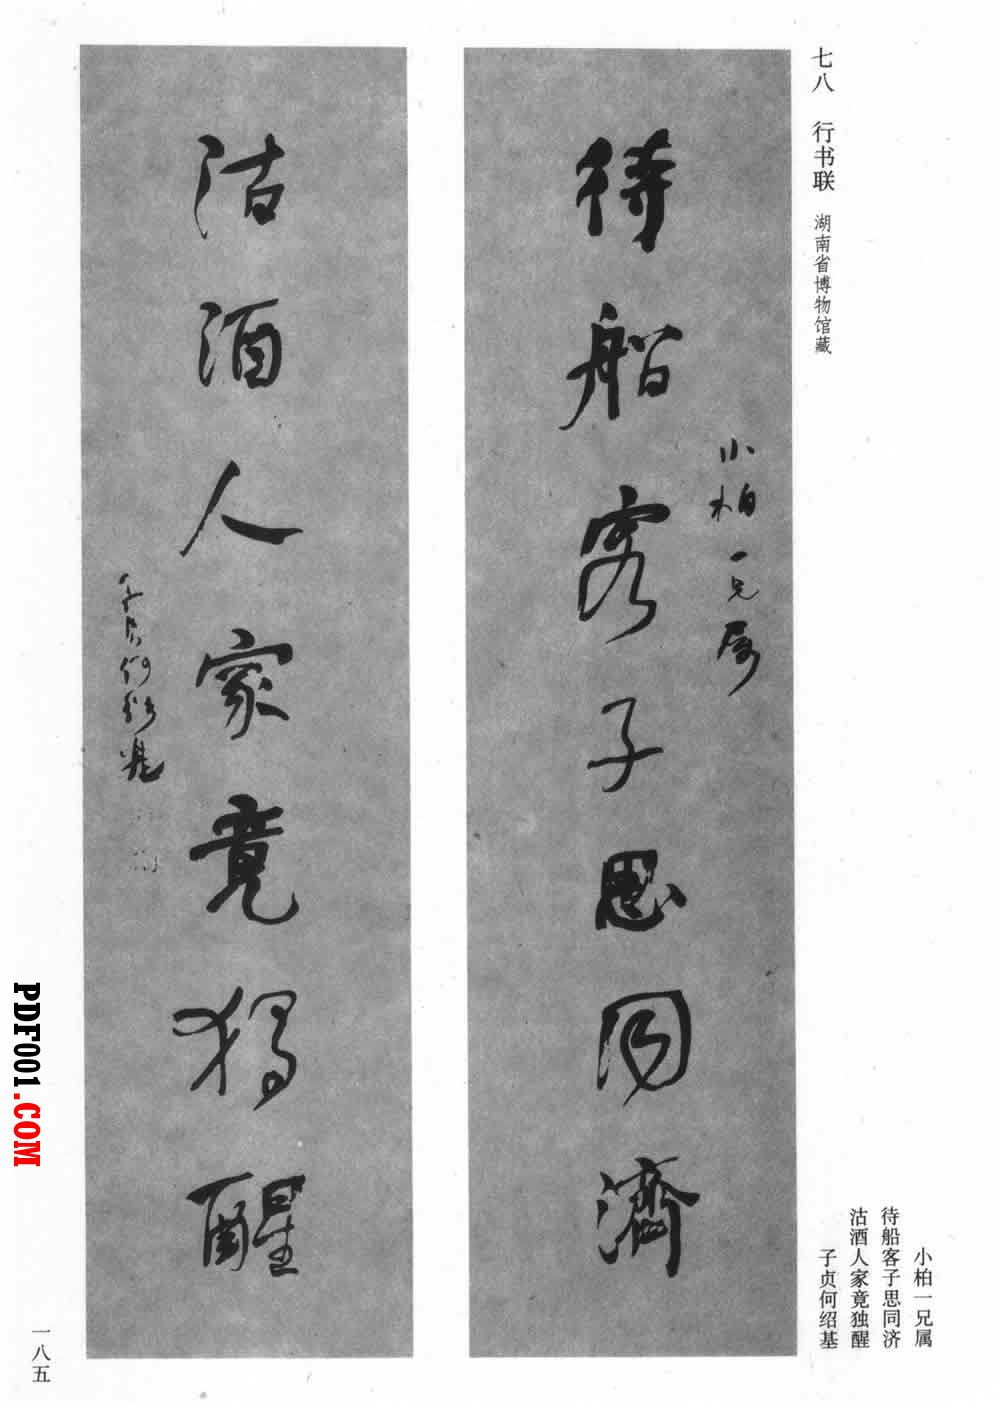 七八 行书联 湖南省博物馆藏
待船客子思同濟
小柏一兄属
沽酒人家竟獨醒
子貞何紹基
小柏一兄属
待船客子思同济
沽酒人家竟独醒
子贞何绍基
一八五
PDF001.COM